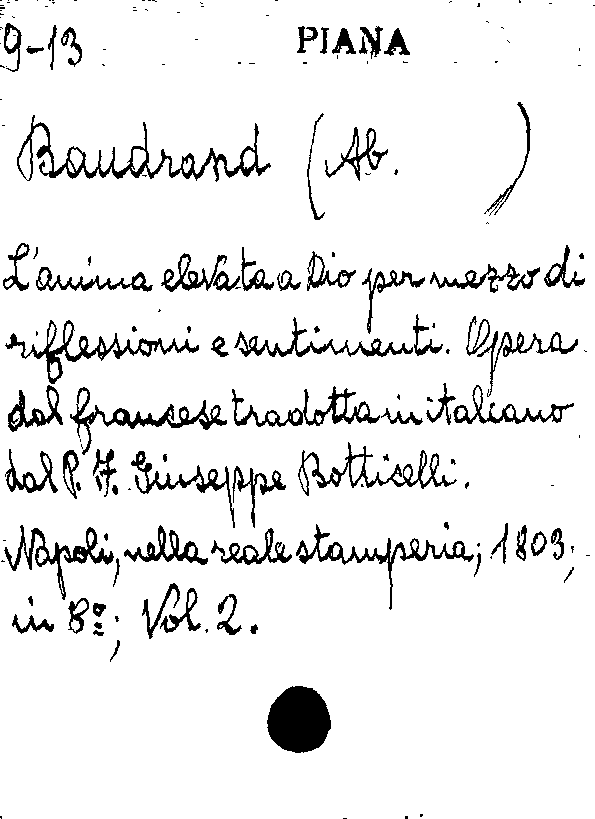 9-13 PIANA
Baudrand (Ab. )
L'anima elevata a Dio per mezzo di
riflessioni e sentimenti. Opera
dal francese tradotta in italiano
dal P. F. Giuseppe Botticelli.
Napoli, nella reale stamperia; 1803;
in 8º; Vol. 2.